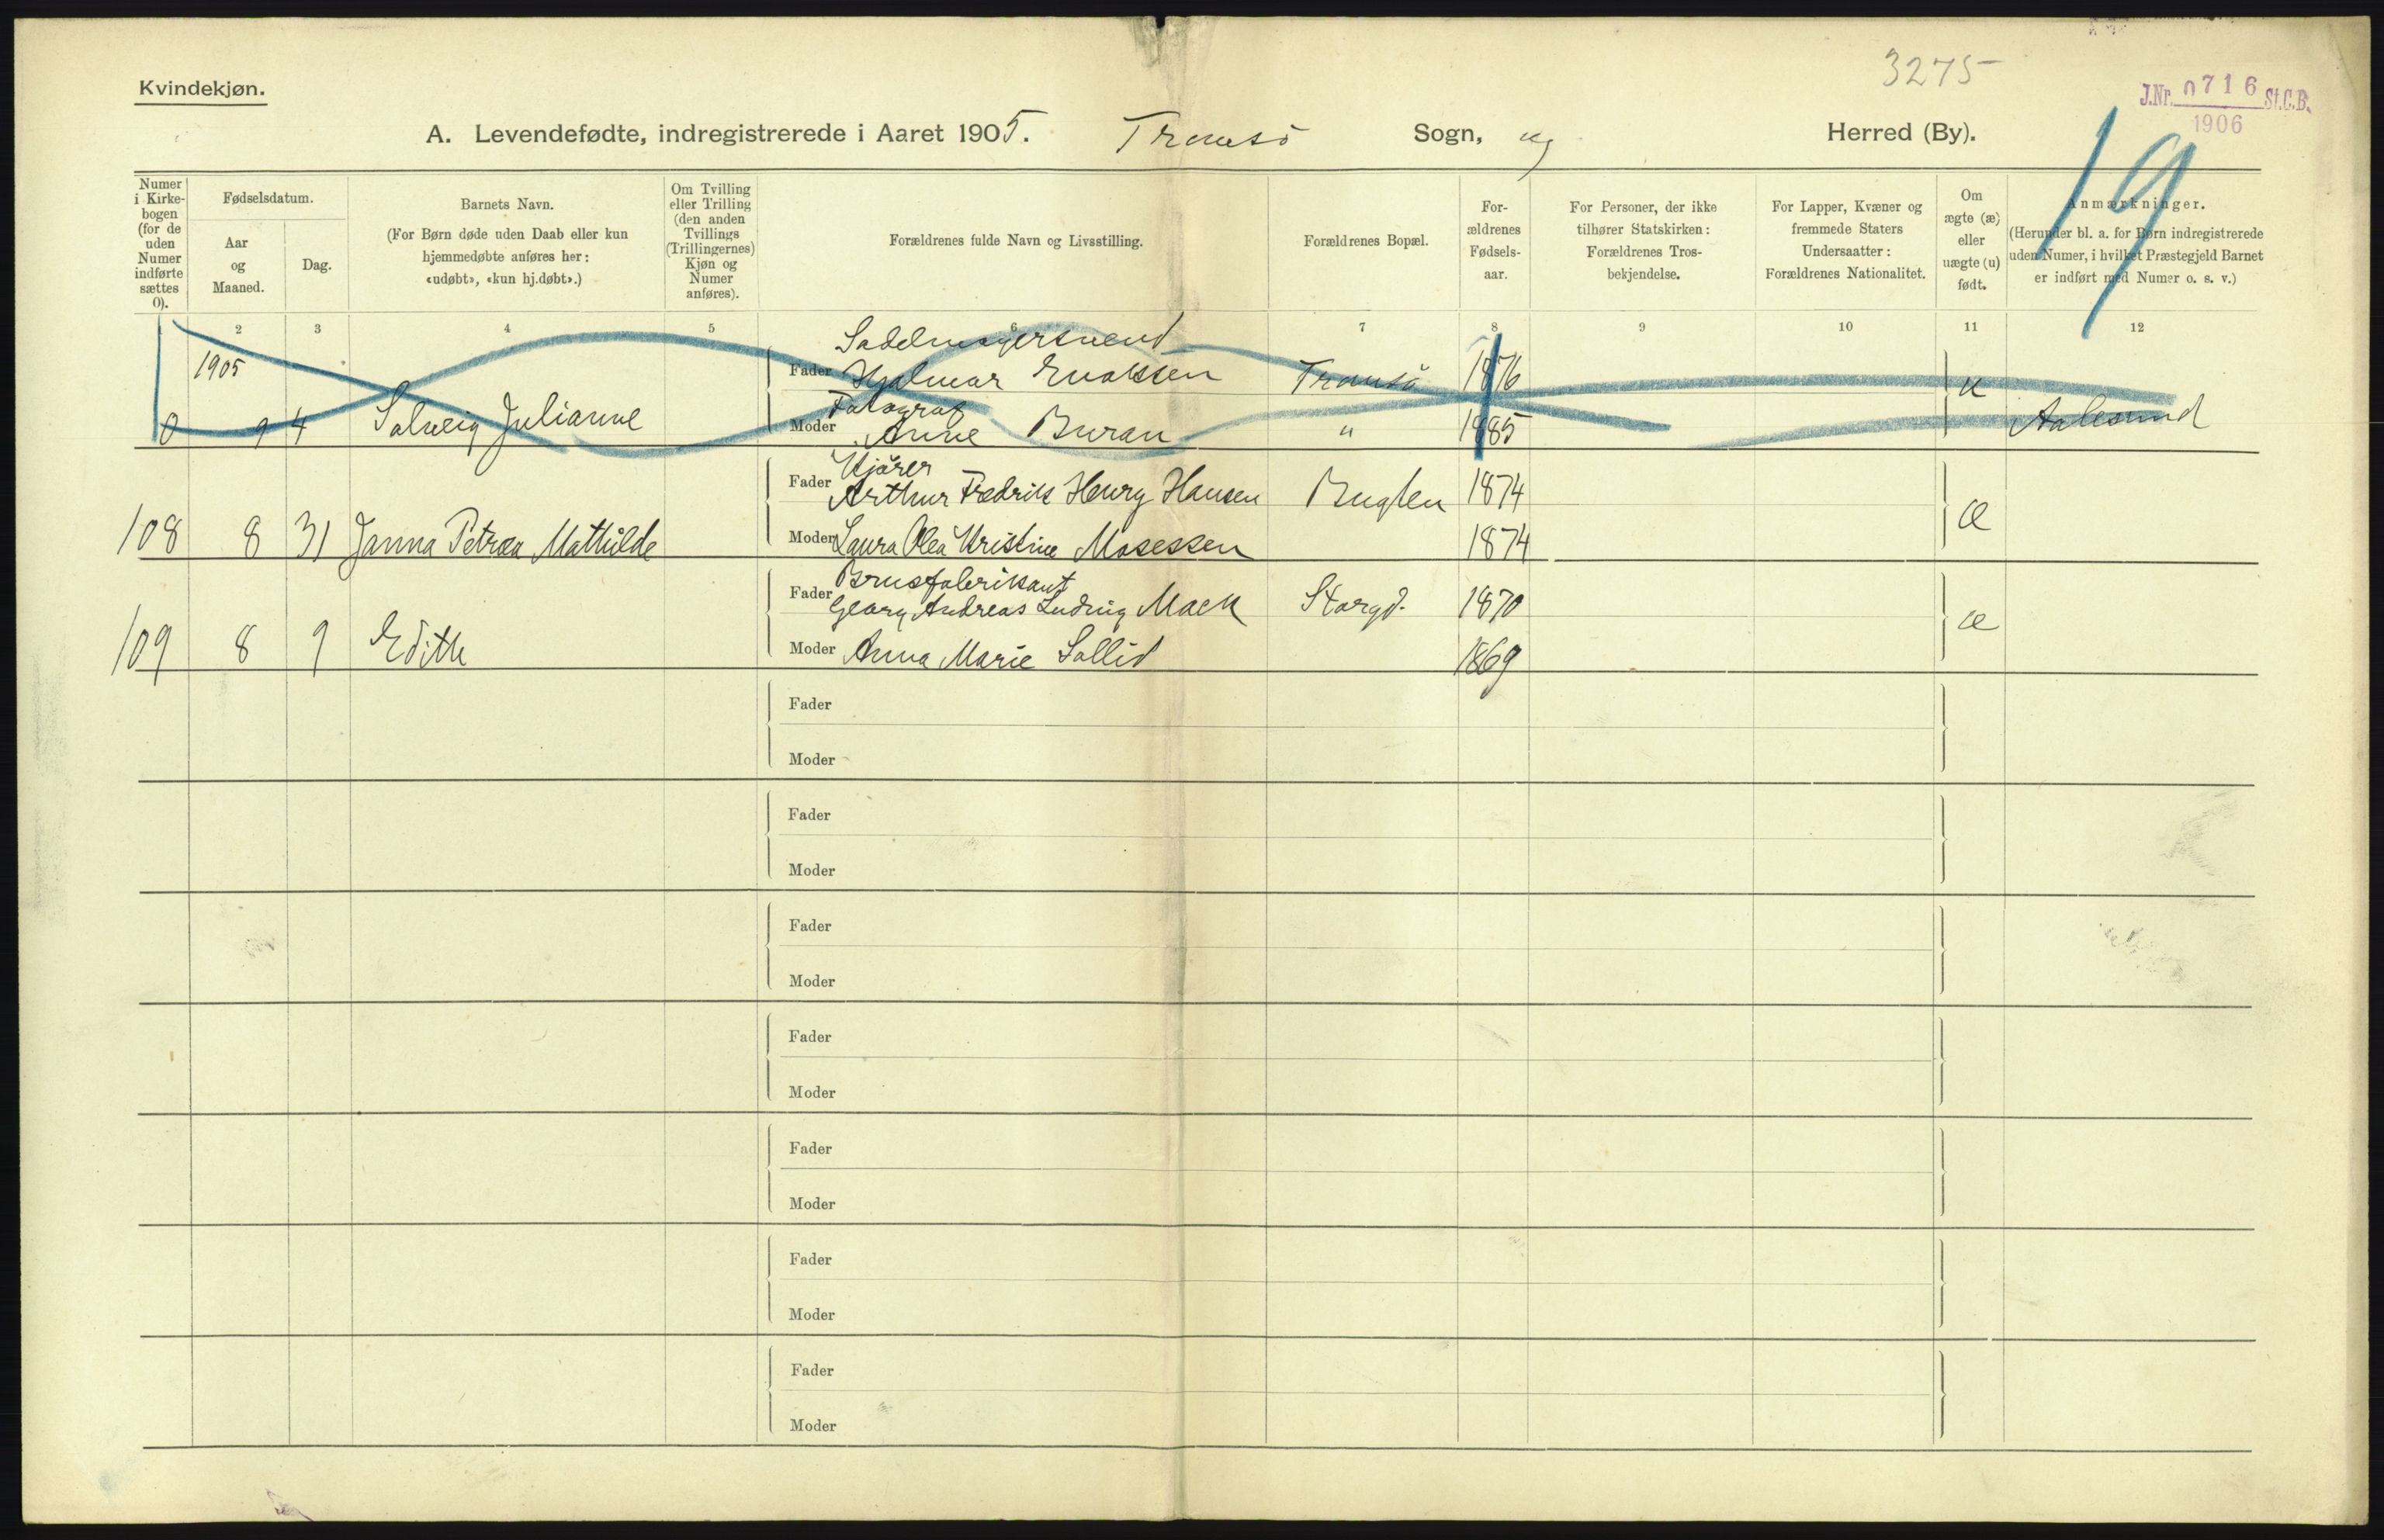 3275
Kvindekjøn.
J.Nr. 0716 St.C.B.
1906
A. Levendefødte, indregistrerede i Aaret 1905. Tromsö Sogn, og Herred (By).
19
Numer i Kirkebogen (for de uden Numer indførte sættes 0).
Fødselsdatum.
Aar og Maaned.
Dag.
Barnets Navn.
(For Børn døde uden Daab eller kun
hjemmedøbte anføres her:
«udøbt», «kun hj.døbt».)
Om Tvilling
eller Trilling
(den anden
Tvillings
(Trillingernes)
Kjøn og
Numer
anføres).
Forældrenes fulde Navn og Livsstilling.
Forældrenes Bopæl.
For-
ældrenes
Fødsels-
aar.
For Personer, der ikke
tilhører Statskirken:
Forældrenes Tros-
bekjendelse.
For Lapper, Kvæner og
fremmede Staters
Undersaatter:
Forældrenes Nationalitet.
Om
ægte (æ)
eller
uægte (u)
født.
Anmærkninger.
(Herunder bl. a. for Børn indregistrerede
uden Numer, i hvilket Præstegjeld Barnet
er indført med Numer o. s. v.)
1 2 3 4 5 6 7 8 9 10 11 12
Sadelmagersvend
1905 Fader Hjalmar Enoksen Tromsö 1876 u
Fotograf
0 9 4 Solveig Julianne Moder Anne Buran " 1885 Aalesund
Kjörer
Fader Arthur Fredrik Henry Hansen 1874 æ
108 8 31 Janna Petrea Mathilde Moder Laura Olea Kristine Mosessen 1874
Brusfabrikant
Fader Georg Andreas Ludvig Mack Storgd. 1870 æ
109 8 9 Edith Moder Anna Marie Sollid 1869
Fader
Moder
Fader
Moder
Fader
Moder
Fader
Moder
Fader
Moder
Fader
Moder
Fader
Moder